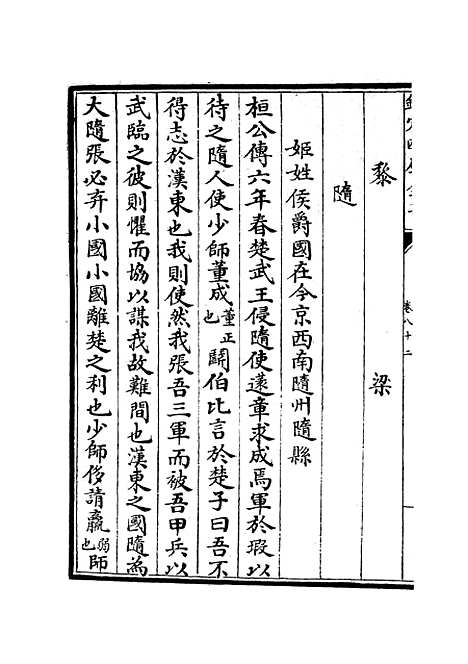 黎　梁
隨
姬姓侯爵國在今京西南隨州隨縣
桓公傳六年春楚武王侵隨使薳章求成焉軍於瑕以
待之隨人使少師董成董正也鬭伯比言於楚子曰吾不
得志於漢東也我則使然我張吾三軍而被吾甲兵以
武臨之彼則懼而協以謀我故難間也漢東之國隨為
大隨張必弃小國小國離楚之利也少師侈請羸弱也師
卷八十二